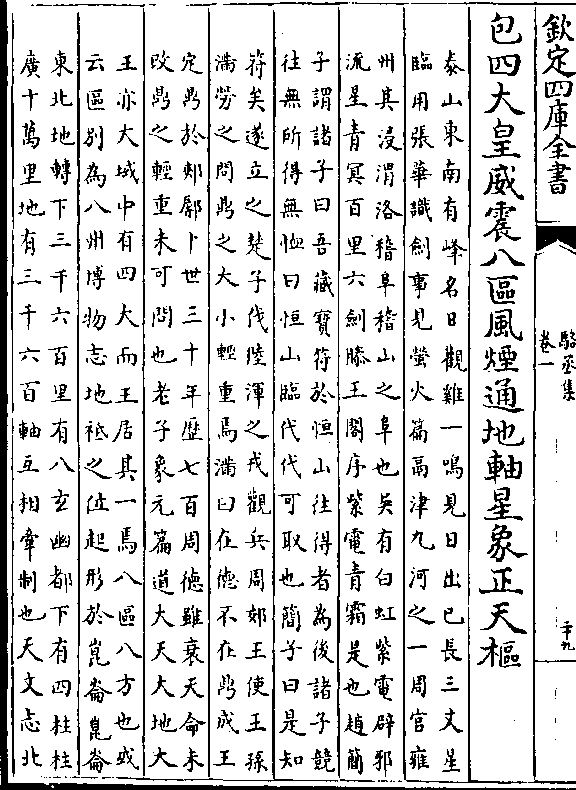 欽定四庫全書
駱丞集
卷一
包四大皇威震八區風煙通地軸星象正天樞
泰山東南有峰名日觀雞一鳴見日出已長三丈星
臨用張華識劍事見螢火篇鬲津九河之一周官雍
州其浸渭洛稽阜稽山之阜也吳有白虹紫電辟邪
流星青冥百里六劍滕王閣序紫電青霜是也趙簡
子謂諸子曰吾藏寶符於恒山往得者為後諸子競
往無所得無恤曰恒山臨代代可取也簡子曰是知
符矣遂立之楚子伐陸渾之戎觀兵周郊王使王孫
滿勞之問鼎之大小輕重焉滿曰在德不在鼎成王
定鼎於郟鄏卜世三十年歷七百周德雖衰天命未
改鼎之輕重未可問也老子象元篇道大天大地大
王亦大域中有四大而王居其一焉八區八方也或
云區別為八州博物志地祇之位起形於崑崙崑崙
東北地轉下三千六百里有八玄幽都下有四柱柱
廣十萬里地有三千六百軸互相牽制也天文志北